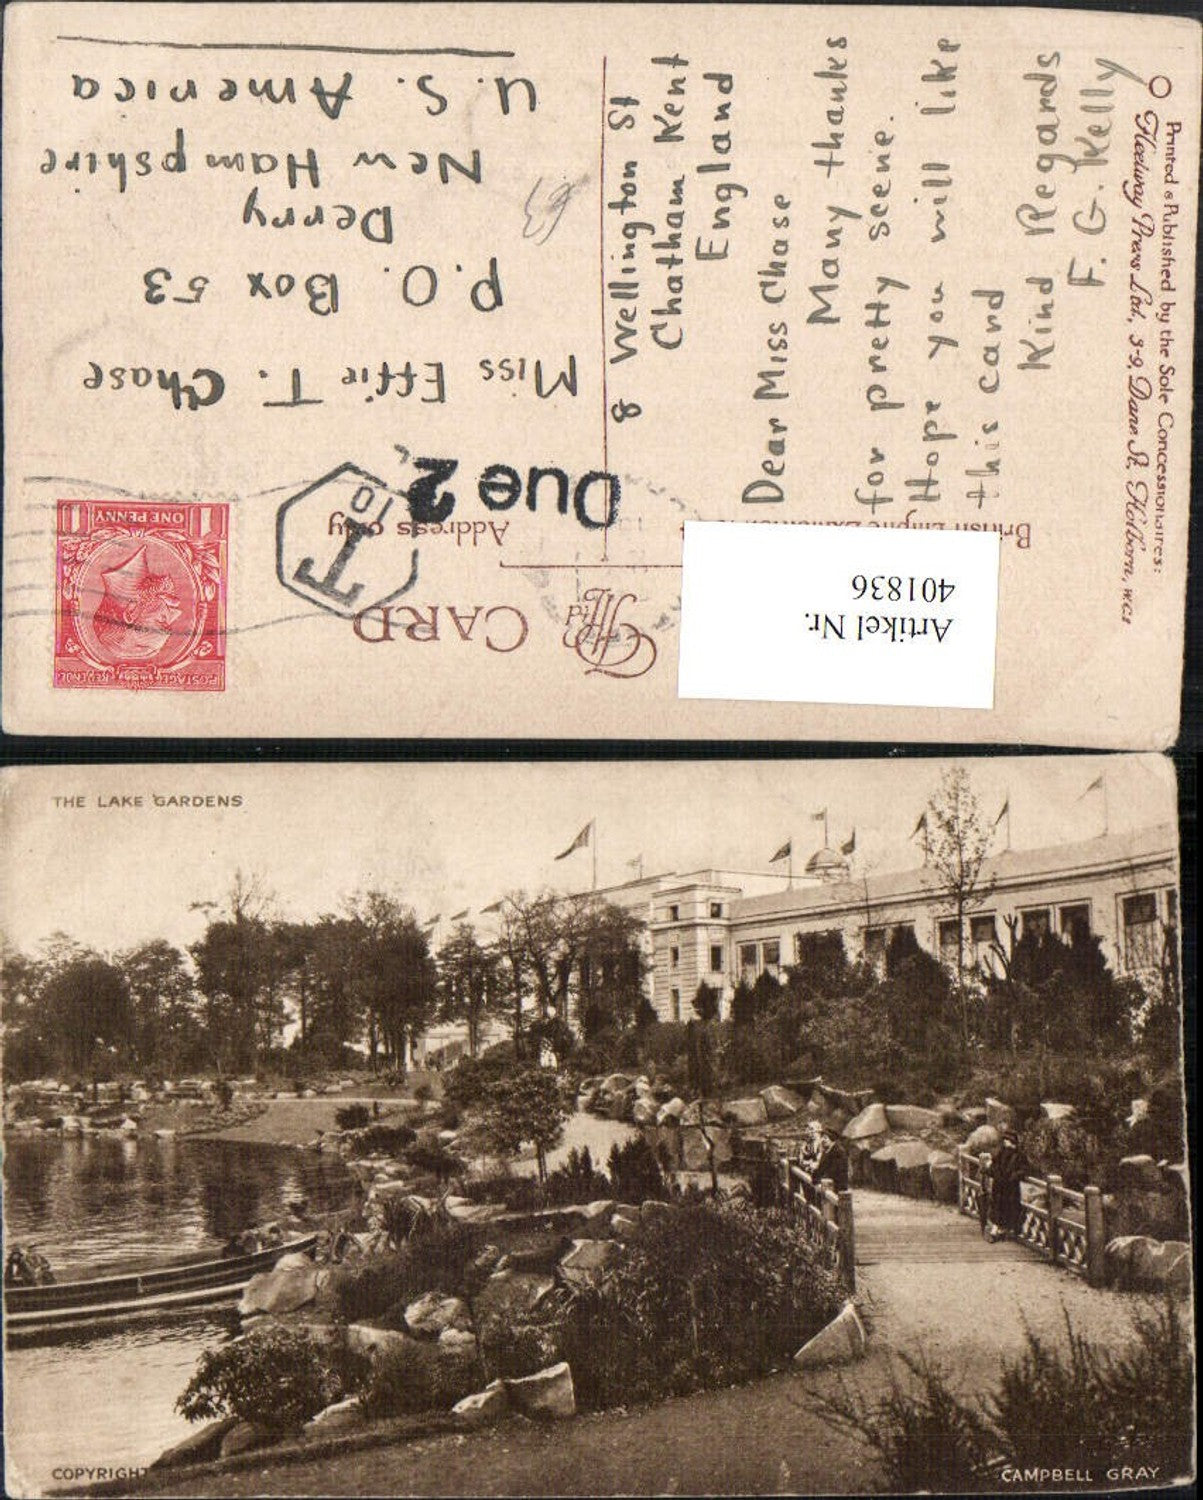 POST CARD
Ltd
Address only
POSTAGE REVENUE
1 ONE PENNY 1
T
10
Due 2
Miss Effie T. Chase
P.O. Box 53
Derry
New Hampshire
U. S. America
8 Wellington St
Chatham Kent
England
Dear Miss Chase
Many thanks
for pretty scene.
Hope you will like
this card
Kind Regards
F. G. Kelly
British Empire
Printed & Published by the Sole Concessionaires:
Fleetway Press Ltd., 3-9, Dane St. Holborn, WC1
Artikel Nr.
401836
THE LAKE GARDENS
COPYRIGHT
CAMPBELL GRAY